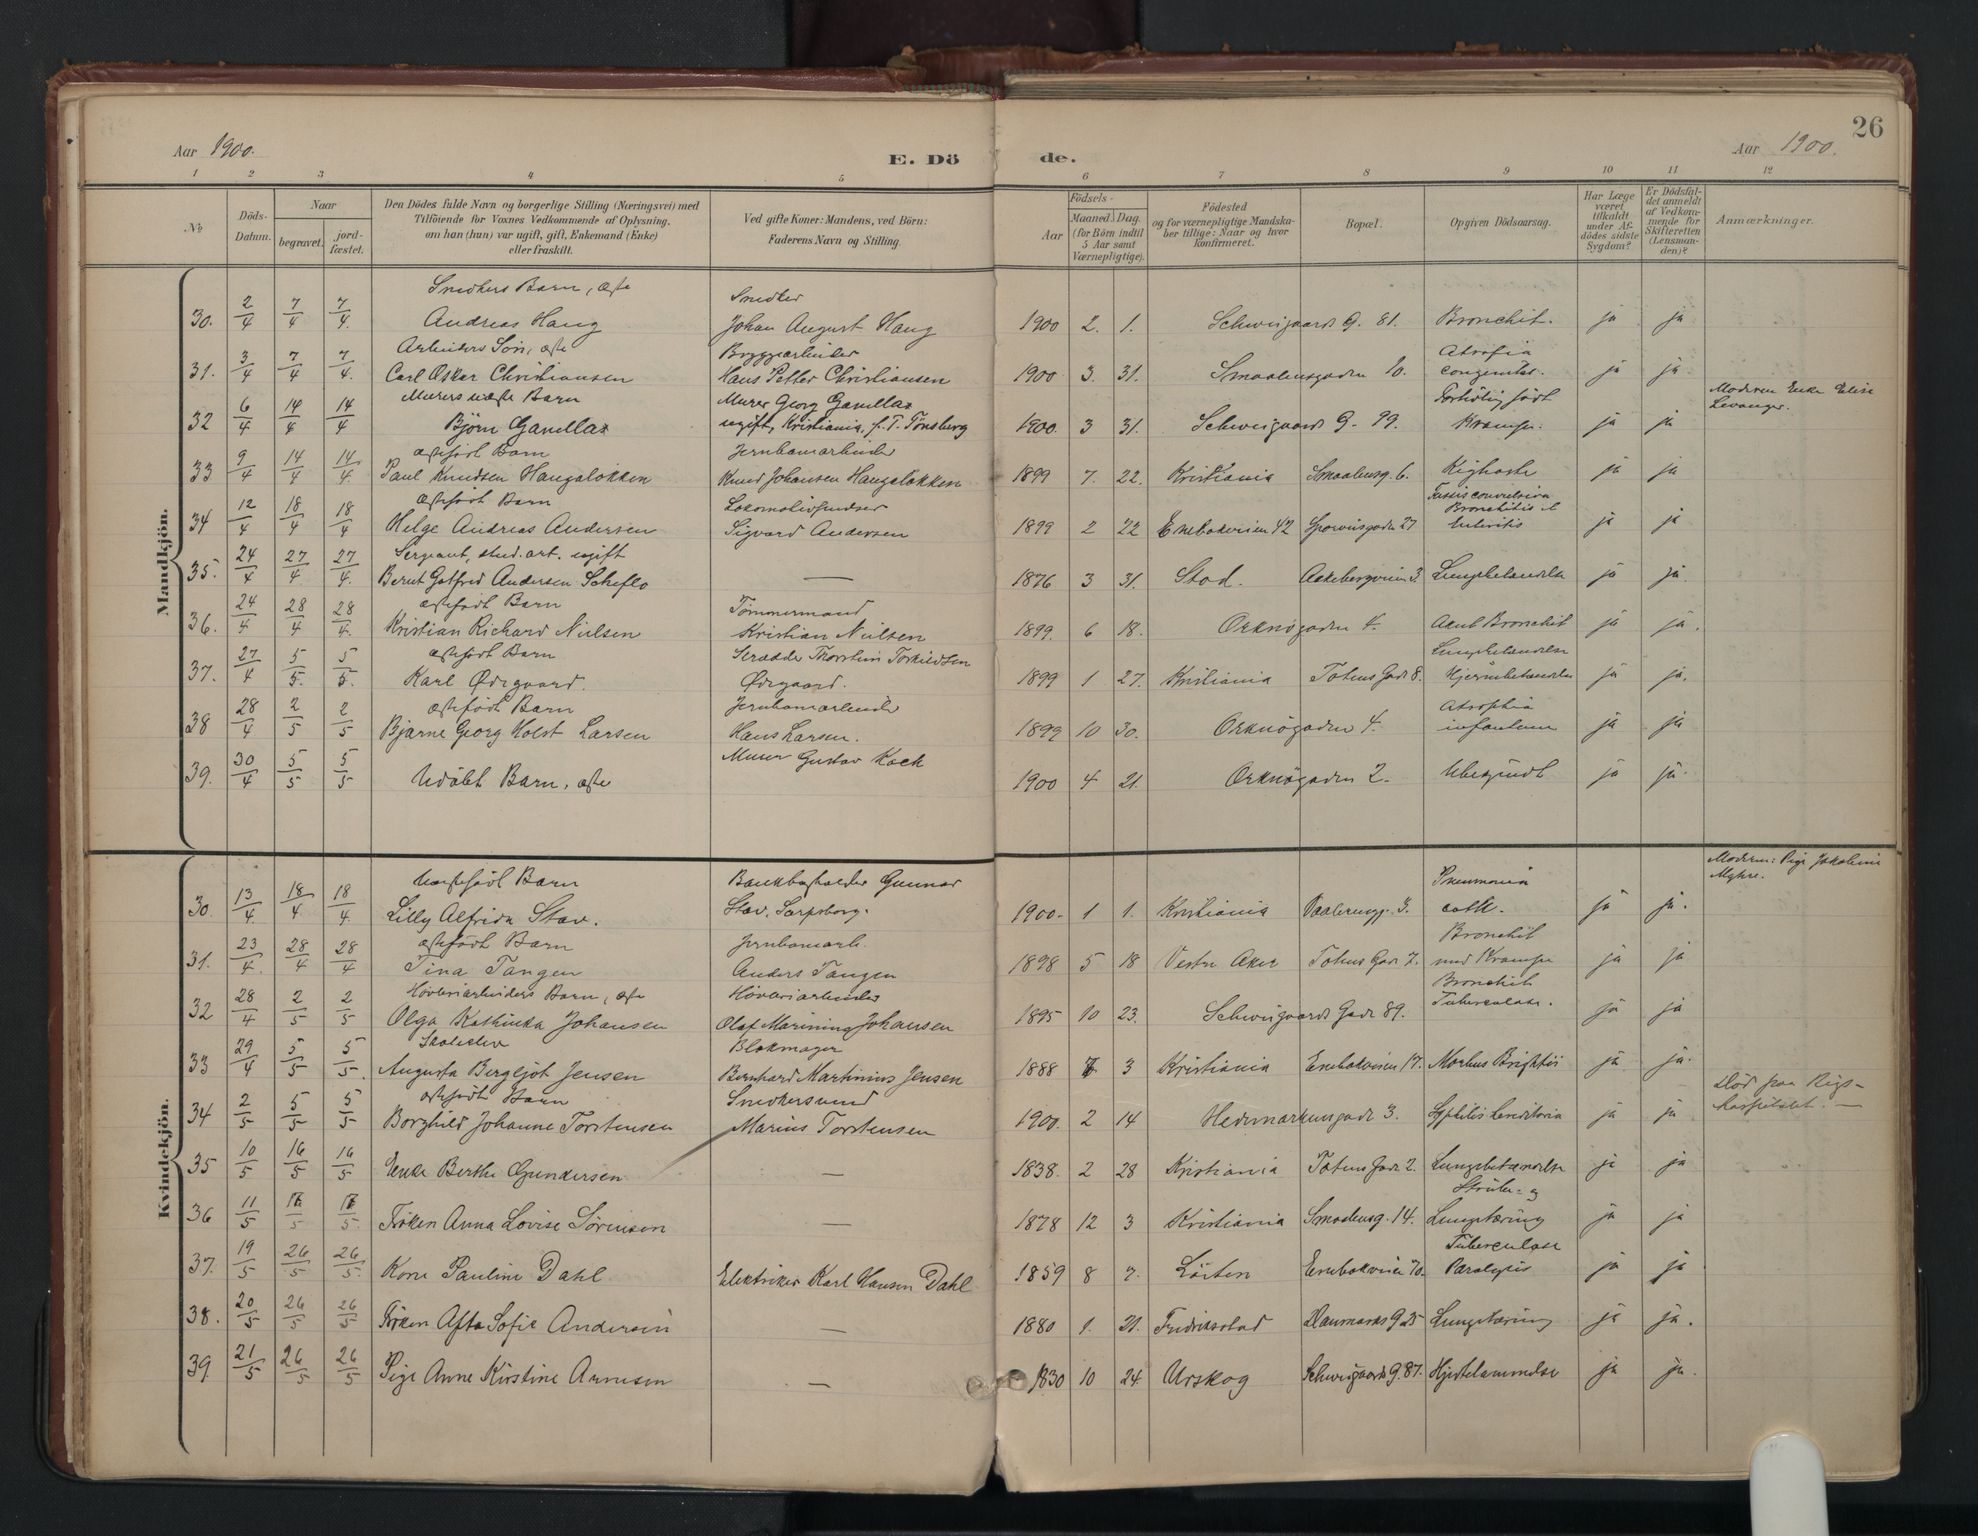 26
Aar 1900.
E. Dö de.
Aar 1900.
1 2 3 4 5 6 7 8 9 10 11 12
№
Döds-Datum.
Naar
begravet.
jord-fæstet.
Den Dödes fulde Navn og borgerlige Stilling (Næringsvei) med
Tilföiende for Voxnes Vedkommende af Oplysning,
om han (hun) var ugift, gift, Enkemand (Enke)
eller fraskilt.
Ved gifte Koner: Mandens, ved Börn:
Faderens Navn og Stilling.
Födsels-
Aar
Maaned. Dag.
(for Börn indtil
5 Aar samt
Værnepligtige).
Födested
og for værnepligtige Mandska-
ber tillige: Naar og hvor
konfirmeret.
Bopæl.
Opgiven Dödsaarsag.
Har Læge
været
tilkaldt
under Af-
dödes sidste
Sygdom?
Er Dödsfal-
det anmeldt
af Vedkom-
mende for
Skifteretten
(Lensman-
den)?
Anmærkninger.
Mandkjön.
Snedkers Barn, ægte Snedker
30. 2/4 7/4 7/4. Andreas Haug Johan August Haug 1900 2. 1. Schweigaards G. 81. Bronchit. ja ja
Arbeiders Sön, ægte Bryggearbeider Atrofia
31. 3/4 7/4 7/4. Carl Oskar Christiansen Hans Petter Christiansen 1900 3. 31. Smaalensgaden 10. congenital. ja ja
Murers uægte Barn Murer Georg Förtidlig födt Moderen Enke Elise
32 6/4 14/4 14/4 Björn ugift, Kristiania, f. T. Tönsberg 1900. 3 31. Schweigaards G. 99. Krampe. ja ja Levanger.
ægtefödt Barn Jernbanearbeider
33 9/4 14/4 14/4. Paul Knudsen Haugaløkken Knud Johansen Haugaløkken 1899 7. 22. Kristiania Smaalensg. 6. Kighoste ja ja
ægtefödt Barn Lokomotivpudser Tussis convulsiva Bronchitis
34 12/4 18/4 18/4 Helge Andreas Andersen Sigvard Andersen 1899 2 22 Enebakveien 42 27 Enteritis ja ja
Sergeant, stud. art. ugift
35. 24/4 27/4 27/4. Bernt Gotfred Andersen Scheflo — 1876 3 31. Stod. Aakebergveien 3. Lungebetændelse ja ja.
ægtefödt Barn Tömmermand
36. 24/4 28/4 28/4. Kristian Richard Nielsen Kristian Nielsen 1899. 6 18. Orknögaden 4. Akut Bronchit ja ja.
ægtefödt Barn Skrædder Thorstein Torkildsen Lungebetændelse
37. 27/4 5/5. 5/5. Karl Ødegaard. Ødegaard. 1899 1 27. Kristiania Totens Gade 8. Hjernebetændelse ja ja.
ægtefödt Barn Jernbanearbeider Atrophia
38 28/4 2/5 2/5 Bjarne Georg Holst Larsen Hans Larsen. 1899 10 30. Orknögaden 4. infantum ja ja
Murer Gustav Koch
39. 30/4 5/5 5/5 Udöbt Barn, ægte 1900 4 21. Orknögaden 2. Ubekjendt ja ja.
Kvindekjön.
Uægtefödt Barn Bankbogholder Gunnar Pneumonia Moderen: Pige Jakobine
30. 13/4. 18/4 18/4 Lilly Alfrida Stav. Stav, Sarpsborg. 1900. 1 1. Kristiania Vaalerengg. 3. cath. ja ja. Myhre.
ægtefödt Barn Jernbanearb. Bronchit
31. 23/4. 28/4 28/4 Tina Tangen Anders Tangen 1898 5 18 Vestre Aker Totens Gade 7. med Krampe ja ja
Høvleriarbeiders Barn, ægte Høvleriarbeider Bronchit
32 28/4 2/5 2/5 Olga Kathinka Johansen Olaf Marining Johansen 1895 10 23. Schweigaards Gade 89. Tuberculose. ja ja
Skoleelev Blokmager
33 29/4 5/5 5/5. Augusta Bergljot Jensen Bernhard Martinius Jensen 1888 7 3 Kristiania Enebakveien 17. Morbus Brightii ja ja.
ægtefödt Barn Snedkersvend Död paa Rigs-
34 2/5 5/5 5/5 Borghild Johanne Torstensen Marius Torstensen 1900. 2 14 Hedemarkensgade 3. Syphilis hereditaria ja ja hospitalet. —
35 10/5 16/5 16/5 Enke Berthe Gundersen — 1838. 2 28 Kristiania Totens Gade 2. Lungebetændelse ja ja
Strube- og
36 11/5 16/5 16/5. Frøken Anna Lovise Sørensen — 1878 12 3 Kristiania Smaalensg. 14. Lungetæring ja ja
Tuberculose
37. 19/5 26/5 26/5. Kone Pauline Dahl Elektriker Karl Hansen Dahl 1859 8 7. Löiten Enebakveien 70. Paralysis ja ja
38. 20/5 26/5 26/5 Frøken Asta Sofie Andersen — 1880 1. 21. Fredriksstad Danmarks G 25 Lungetæring ja ja.
39. 21/5 26/5 26/5 Pige Anne Kirstine Arnesen — 1830 10 24. Urskog Schweigaards G. 87. Hjertelammelse ja ja.